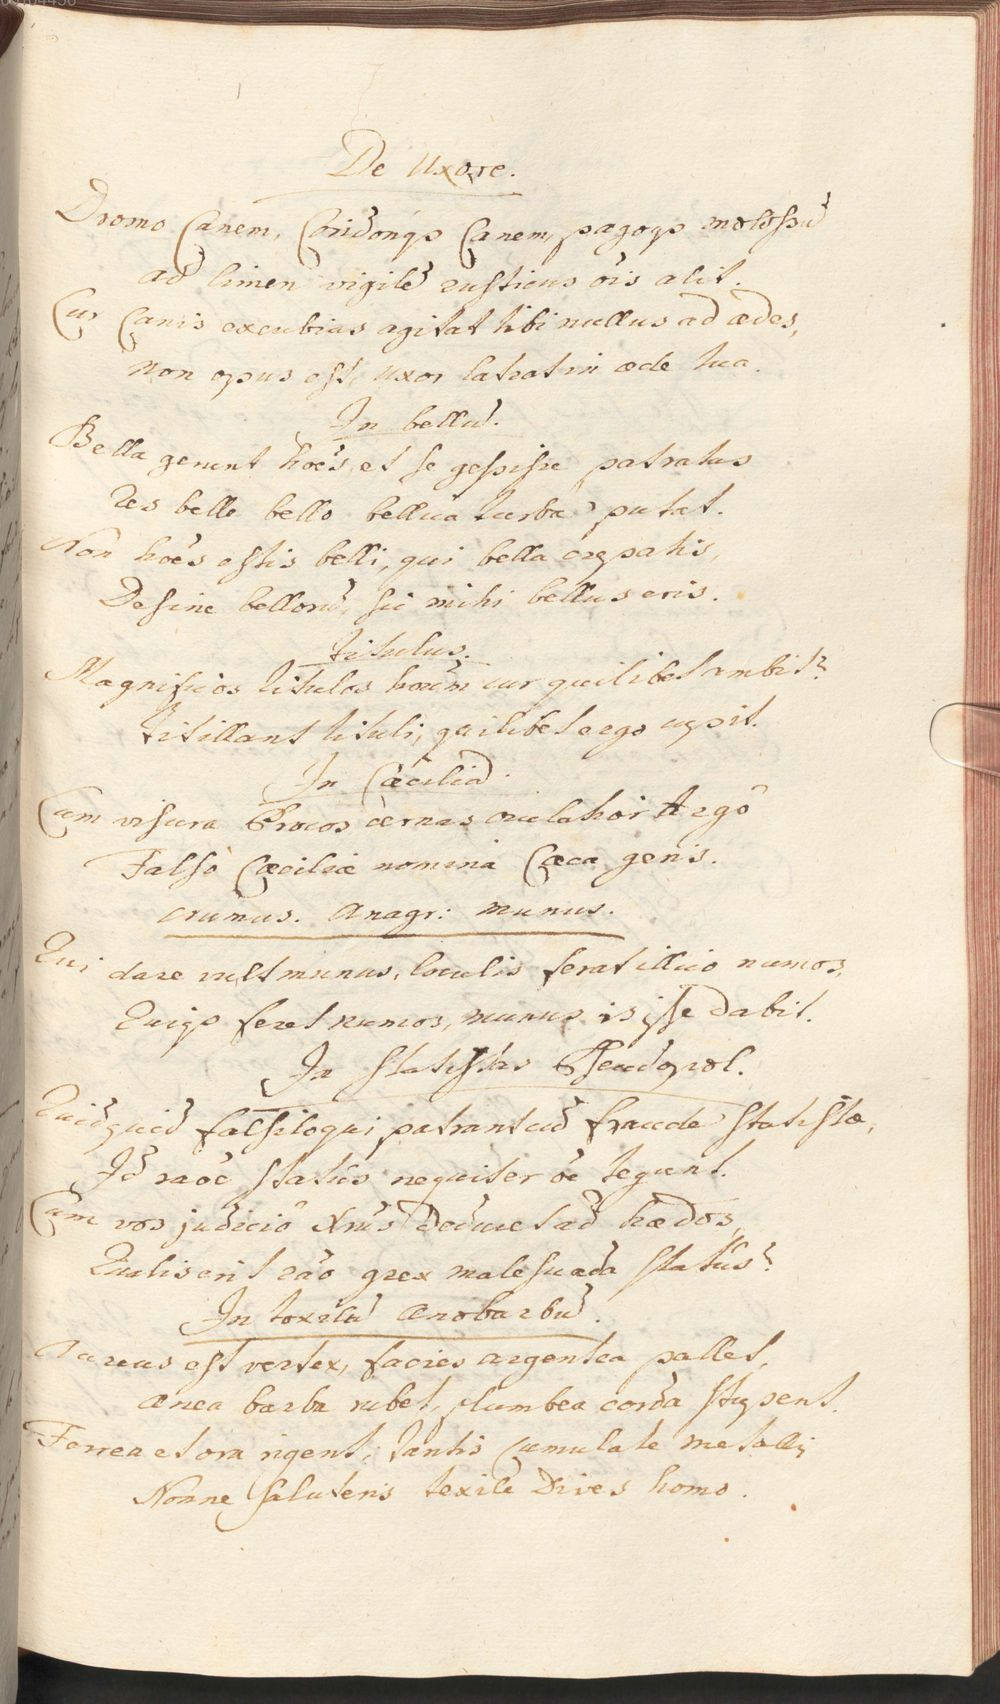 De Uxore.
Dromo Canem, Coridonqȝ Canem, pagoqȝ molossũ
ad limen vigilẽ rusticus õis alit.
Cur Canis excubias agitat tibi nullus ad ædes,
non opus est, uxor latrat in æde tua.
In bellũ.
Bella gerunt hoẽs, et se gessisse patratas
Res belle bello bellua turba putat.
Non hoẽs estis belli, qui bella crepatis,
Desine bellorũ, sic mihi bellus eris.
titulus.
Magnificos titulos horũm cur quilibet ambit?
titillant tituli, quilibet ergo cupit.
In Cæciliã.
Cum visura Procos cernas oculatior Argô
Falsò Cæciliæ nomina Cæca geris.
Nũmus. Anagr: munus.
Qui dare vult munus, loculis ferat illico numos,
Quiqȝ feret numos, munus is ipse dabit.
In statistas Pseudopol.
Quidquid falsiloqui patrant cũ fraude statistæ,
Id raõe statûs nequiter õe tegunt.
Cum vos judiciô Xrũs Deducet ad hædos,
Qualis erit rão grex malesuada statûs?
In toxilũ ænobarbũ.
Aureus est vertex, facies argentea pallet,
ænea barba rubet, plumbea corda stupent.
Ferrea et ora rigent, tantis cumulate metallis
Nonne saluteris toxile Dives homo.